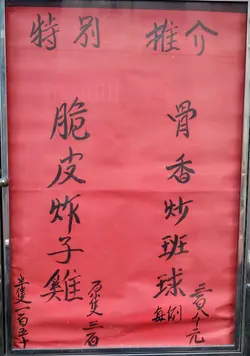 特别 推介
骨香炒班球
每例
三百八十元
脆皮炸子雞
隻 三百
半隻一百五十